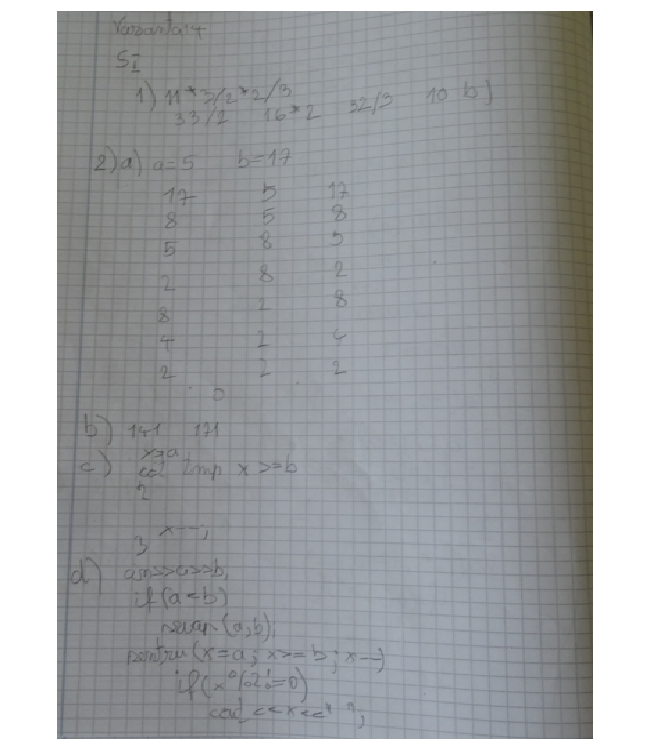 Varianta 14
SI
1) 11*3/2*2/3
33/2 16*2 32/3 10 b)
2) a) a=5 b=17
17 5 17
8 5 8
5 8 5
2 8 2
8 2 8
4 2 4
2 2 2
0
b) 141 171
x=a
c) cat timp x>=b
x--;
d) cin>>a>>b;
if(a<b)
swap(a,b);
pentru(x=a; x>=b; x--)
if(x%2!=0)
cout<<x<<" ";